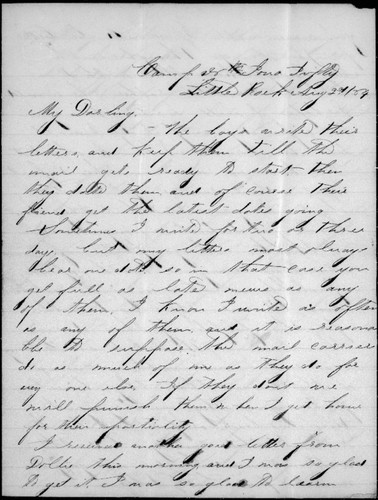 Camp 36th Iowa Infty
Little Rock Aug 29/64
My Darling.
The boys write their
letters and keep them till the
mail gets ready to start, then
they date them and of course their
friends get the latest dates going
Sometimes I write for two or three
days, but my letters most always
bear one date so in that case you
get full as late news as any
of them. I know I write as often
as any of them, and it is reasona
ble to suppose the mail carriers
do as much of me as they do for
any one else. If they dont we
will punish them when I get home
for their partiality
I received another good letter from
Dollie this morning and I was so glad
to get it. I was so glad to learn